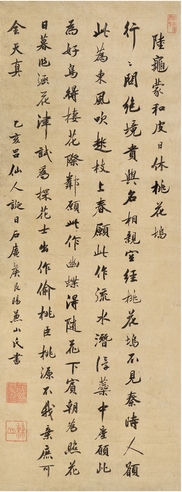 陸龜蒙和皮日休桃花塢
行行問絕境貴與名相親空經桃花塢不見秦時人願
此為東風吹起枝上春願此作流水潛浮蘂中塵願此
為好鳥得棲花際鄰願此作幽蝶得隨花下賓朝為照花
日暮作涵花津試為探花士出作偷桃臣桃源不我棄庶可
全天真 乙亥呂仙人誕日石 書